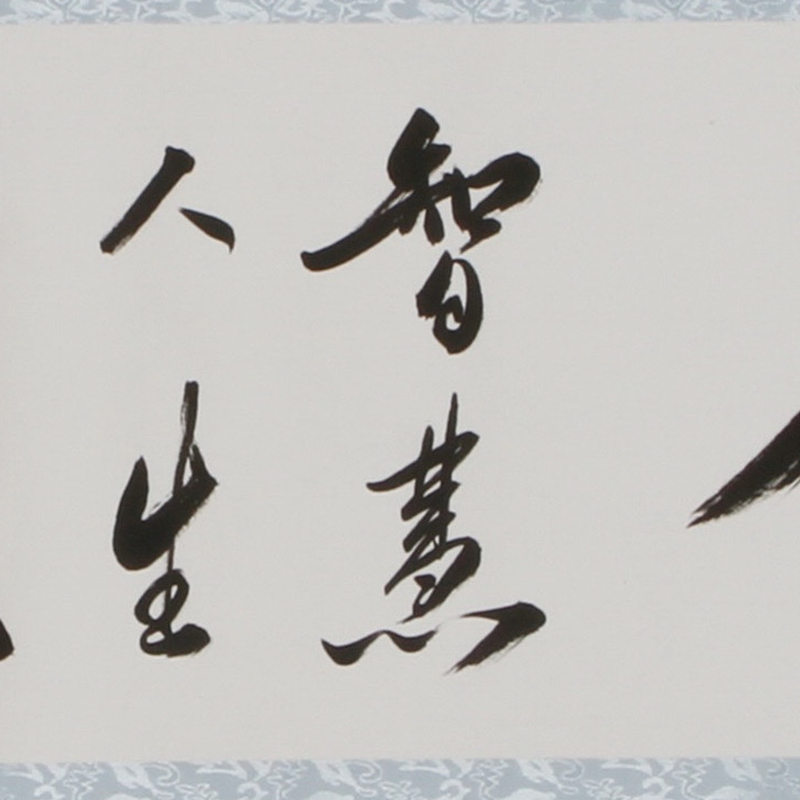 智慧
人生